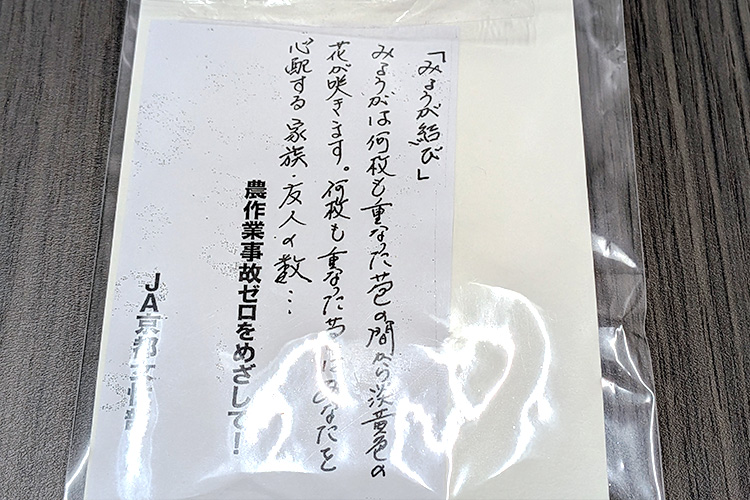 「みょうが結び」
みょうがは何枚も重なった苞の間から淡黄色の
花が咲きます。何枚も重なった苞はあなたを
心配する家族・友人の数…
農作業事故ゼロをめざして!
JA京都女性部